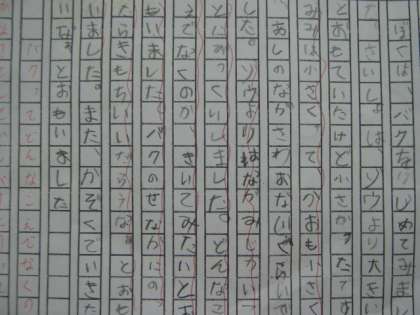 ぼくは、バクをはじめてみまし
た。さいしょは、ゾウより大きい
とおもていたけど小さかったです
みみは小さくて、かおも小さく
あしのながさわおなじぐらいで
した。ゾウよりはながみじかい
とにびっくりしました。どんなこ
えでなくのか、きいてみたいとお
もいました。バクのせなかにの
たらきもちいいだろうな。とおも
いました。また、かぞくでいきた
いな。とおもいました
バクってどんなこえでなくの